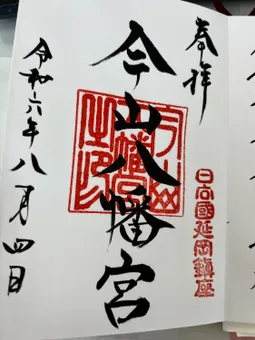 奉拝
日向國延岡鎮座
今山八幡宮
今山八幡宮之印
令和六年八月四日